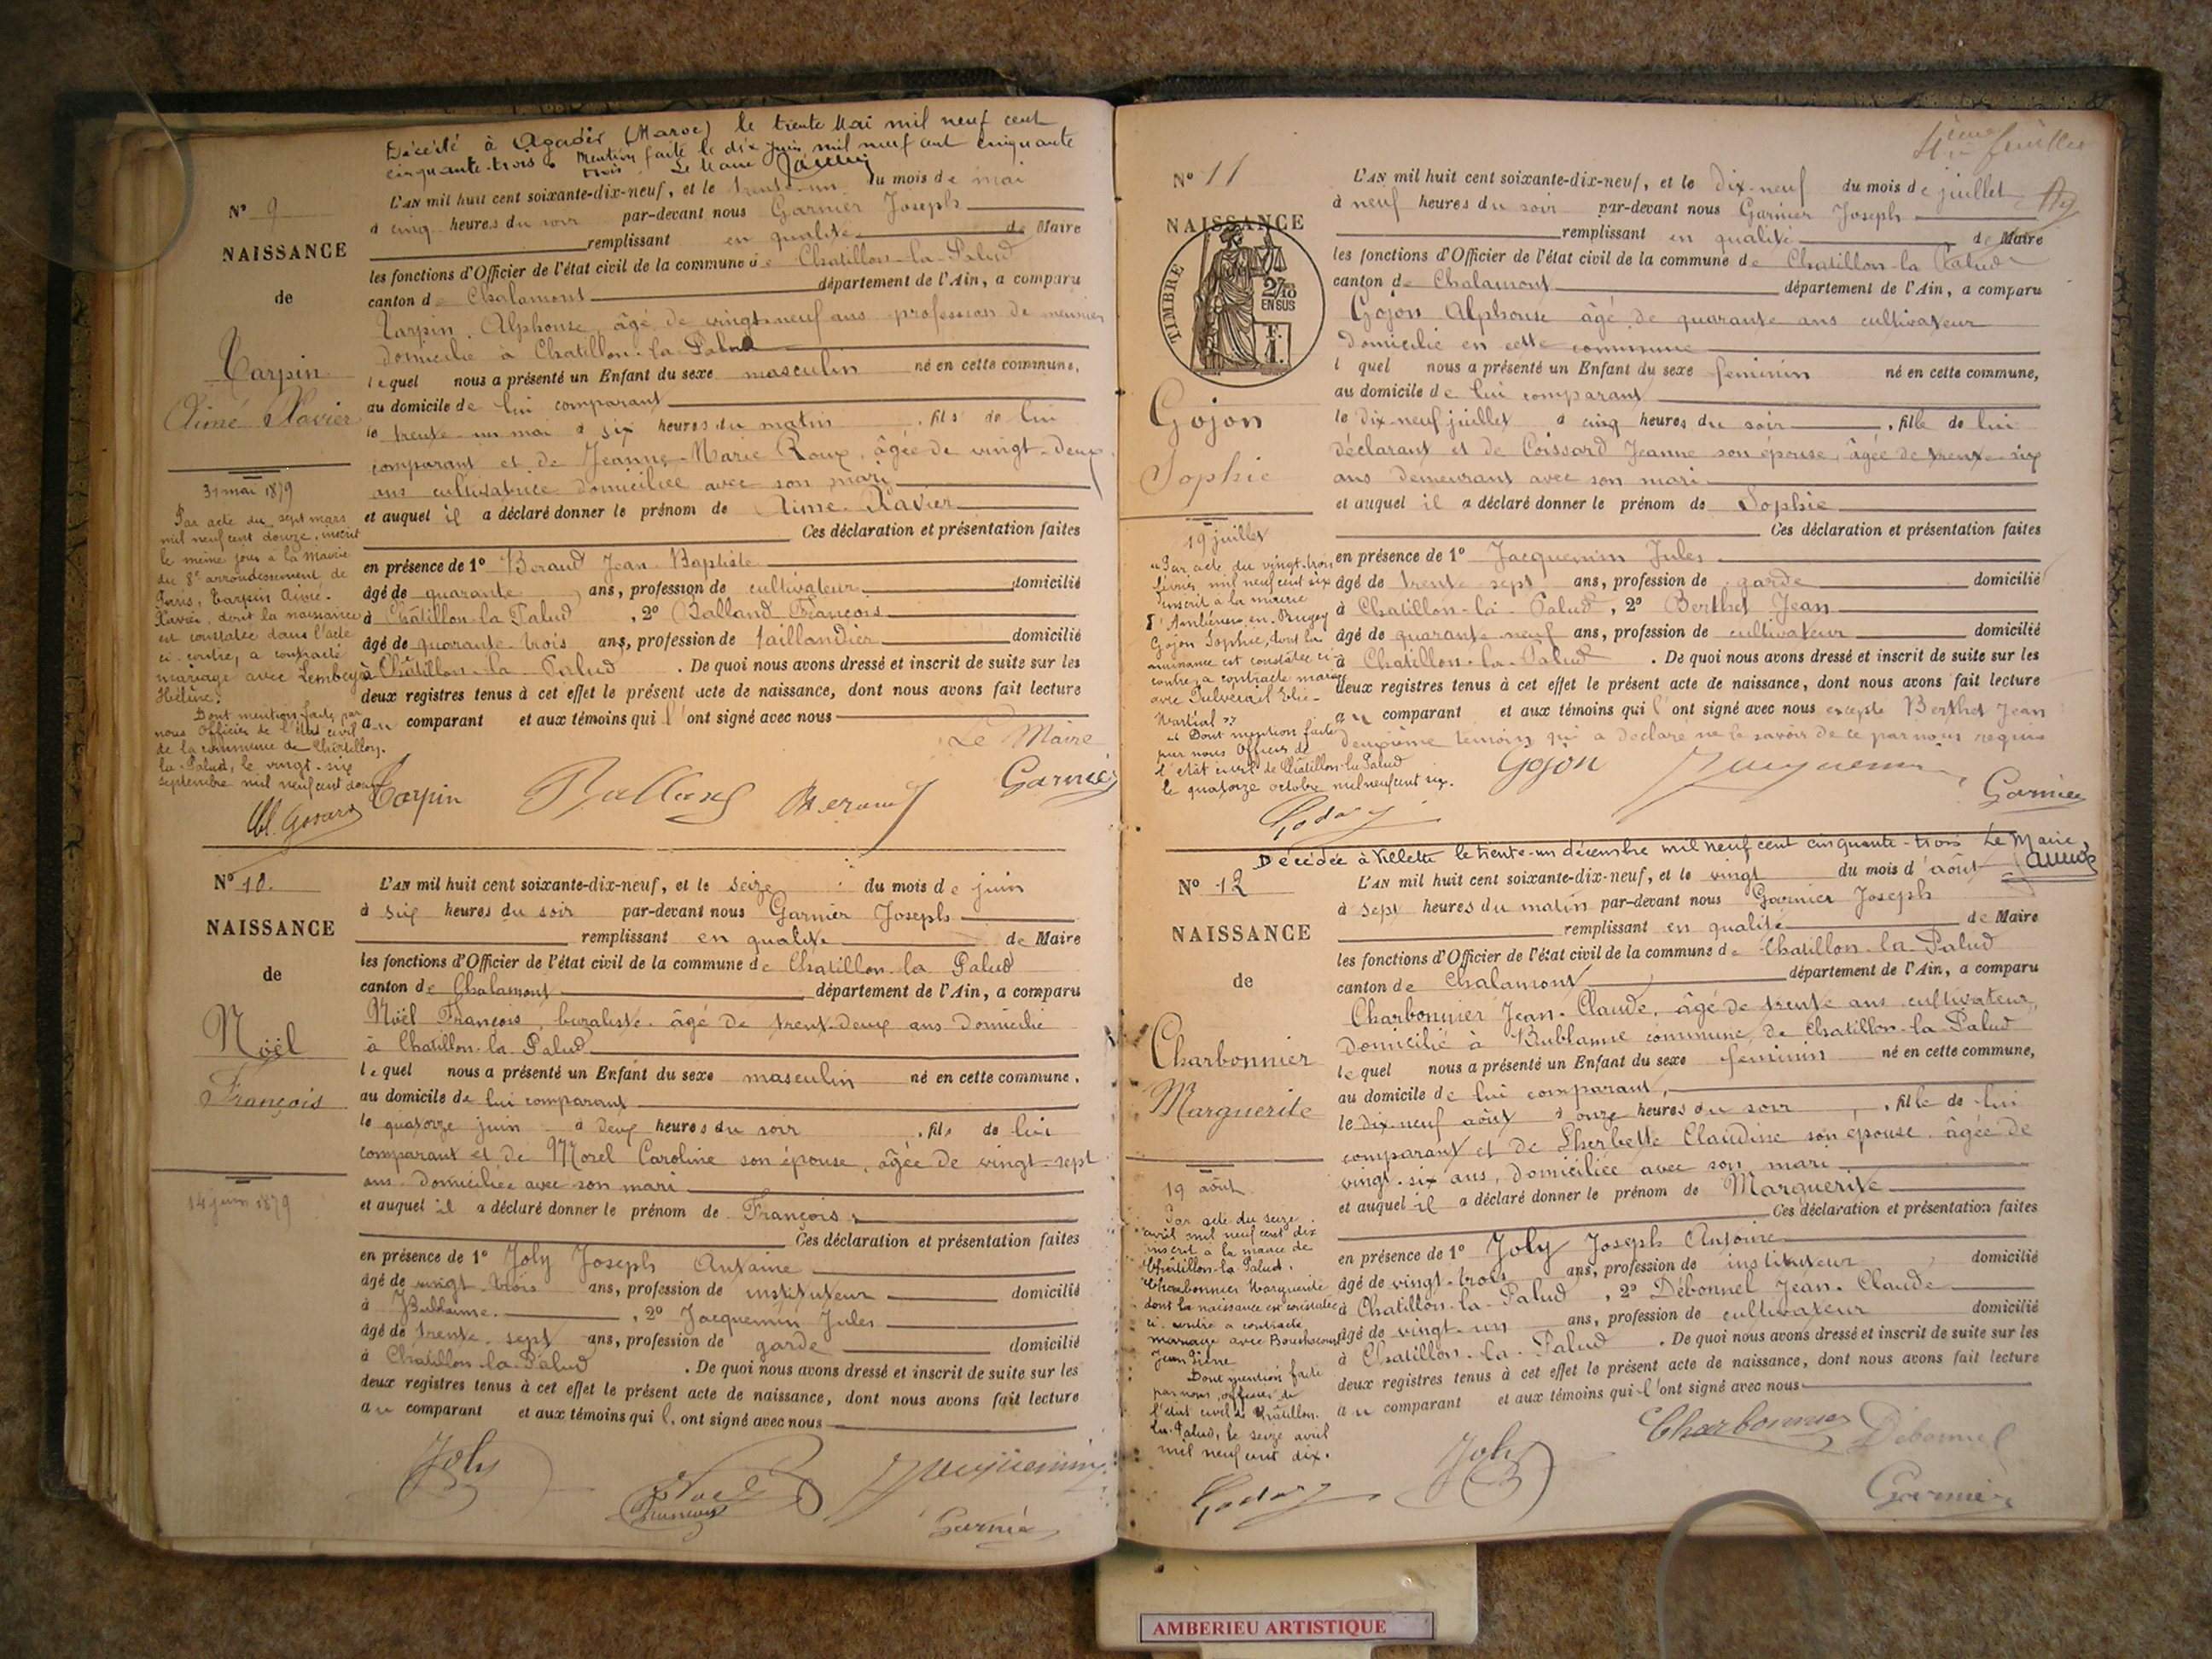 Décédé à Agadir (Maroc) le trente Mai mil neuf cent
cinquante-trois. Mention faite le dix juin mil neuf cent cinquante
trois. Le Maire
N° 9
NAISSANCE
de
Tarpin
Aimé Xavier
31 mai 1879
Par acte du sept mars
mil neuf cent douze, inscrit
le même jour à la Mairie
du 8e arrondissement de
Paris, Tarpin Aimé-
Xavier, dont la naissance
est constatée dans l'acte
ci-contre, a contracté
mariage avec Lembeye
Hélène.
Dont mention faite par
nous Officier de l'état civil
de la commune de Châtillon-
la-Palud, le vingt-six
septembre mil neuf cent douze
L'AN mil huit cent soixante-dix-neuf, et le trente-un du mois de mai
à cinq heures du soir par-devant nous Garnier Joseph
remplissant en qualité de Maire
les fonctions d'Officier de l'état civil de la commune de Chatillon-la-Palud
canton de Chalamont département de l'Ain, a comparu
Tarpin Alphonse, âgé de vingt-neuf ans profession de meunier
domicilié à Chatillon-la-Palud
lequel nous a présenté un Enfant du sexe masculin né en cette commune,
au domicile de lui comparant
le trente-un mai à six heures du matin, fils de lui
comparant et de Jeanne-Marie Roux, âgée de vingt-deux
ans cultivatrice domiciliée avec son mari
et auquel il a déclaré donner le prénom de Aimé Xavier
Ces déclaration et présentation faites
en présence de 1° Beraud Jean Baptiste
âgé de quarante ans, profession de cultivateur domicilié
à Châtillon la Palud, 2° Balland François
âgé de quarante-trois ans, profession de taillandier domicilié
à Châtillon-la-Palud. De quoi nous avons dressé et inscrit de suite sur les
deux registres tenus à cet effet le présent acte de naissance, dont nous avons fait lecture
au comparant et aux témoins qui l'ont signé avec nous
Le Maire
Tarpin Balland Beraud Garnier
N° 10.
NAISSANCE
de
Noël
François
14 juin 1879
L'AN mil huit cent soixante-dix-neuf, et le seize du mois de juin
à six heures du soir par-devant nous Garnier Joseph
remplissant en qualité de Maire
les fonctions d'Officier de l'état civil de la commune de Chatillon-la-Palud
canton de Chalamont département de l'Ain, a comparu
Noël François, buraliste âgé de trente-deux ans domicilié
à Chatillon-la-Palud
lequel nous a présenté un Enfant du sexe masculin né en cette commune,
au domicile de lui comparant
le quatorze juin à deux heures du soir, fils de lui
comparant et de Morel Caroline son épouse, âgée de vingt-sept
ans domiciliée avec son mari
et auquel il a déclaré donner le prénom de François
Ces déclaration et présentation faites
en présence de 1° Joly Joseph Antoine
âgé de vingt-trois ans, profession de instituteur domicilié
à Bublanne, 2° Jacquemin Jules
âgé de trente-sept ans, profession de garde domicilié
à Chatillon-la-Palud. De quoi nous avons dressé et inscrit de suite sur les
deux registres tenus à cet effet le présent acte de naissance, dont nous avons fait lecture
au comparant et aux témoins qui l'ont signé avec nous
Joly Noël François Jacquemin
Garnier
4ème feuillet
N° 11
NAISSANCE
TIMBRE
2/10
EN SUS
Gojon
Sophie
19 juillet
"Par acte du vingt-trois
février mil neuf cent six
inscrit à la mairie
d'Ambérieu-en-Bugey
Gojon Sophie, dont la
naissance est constatée ci-
contre, a contracté mariage
avec Pulvérail Elie-
Martial"
Dont mention faite
par nous Officier de
l'état civil de Châtillon-la-Palud
le quatorze octobre mil neuf cent six.
L'AN mil huit cent soixante-dix-neuf, et le dix-neuf du mois de juillet
à neuf heures du soir par-devant nous Garnier Joseph
remplissant en qualité de Maire
les fonctions d'Officier de l'état civil de la commune de Chatillon-la-Palud
canton de Chalamont département de l'Ain, a comparu
Gojon Alphonse âgé de quarante ans cultivateur
domicilié en cette commune
l quel nous a présenté un Enfant du sexe féminin né en cette commune,
au domicile de lui comparant
le dix-neuf juillet à cinq heures du soir, fille de lui
déclarant et de Coissard Jeanne son épouse, âgée de trente-six
ans demeurant avec son mari
et auquel il a déclaré donner le prénom de Sophie
Ces déclaration et présentation faites
en présence de 1° Jacquemin Jules
âgé de trente-sept ans, profession de garde domicilié
à Chatillon-la-Palud, 2° Berthet Jean
âgé de quarante-neuf ans, profession de cultivateur domicilié
à Chatillon-la-Palud. De quoi nous avons dressé et inscrit de suite sur les
deux registres tenus à cet effet le présent acte de naissance, dont nous avons fait lecture
au comparant et aux témoins qui l'ont signé avec nous excepté Berthet Jean
deuxième témoin qui a déclaré ne le savoir de ce par nous requis
Gojon Jacquemin Garnier
Décédée à Villette le trente-un décembre mil neuf cent cinquante-trois Le Maire,
N° 12
NAISSANCE
de
Charbonnier
Marguerite
19 août
Par acte du seize
avril mil neuf cent dix
inscrit à la mairie de
Châtillon-la-Palud,
Charbonnier Marguerite
dont la naissance est constatée
ci-contre a contracté
mariage avec
Jean Pierre
Dont mention faite
par nous, officier de
l'état civil de Châtillon-
la-Palud, le seize avril
mil neuf cent dix.
L'AN mil huit cent soixante-dix-neuf, et le vingt du mois d'août
à sept heures du matin par-devant nous Garnier Joseph
remplissant en qualité de Maire
les fonctions d'Officier de l'état civil de la commune de Chatillon-la-Palud
canton de Chalamont département de l'Ain, a comparu
Charbonnier Jean-Claude, âgé de trente ans cultivateur,
domicilié à Bublanne commune de Chatillon-la-Palud
lequel nous a présenté un Enfant du sexe féminin né en cette commune,
au domicile de lui comparant,
le dix-neuf août à onze heures du soir, fille de lui
comparant et de Lherbette Claudine son épouse âgée de
vingt-six ans, domiciliée avec son mari
et auquel il a déclaré donner le prénom de Marguerite
Ces déclaration et présentation faites
en présence de 1° Joly Joseph Antoine
âgé de vingt-trois ans, profession de instituteur domicilié
à Chatillon-la-Palud, 2° Débonnel Jean-Claude
âgé de vingt-un ans, profession de cultivateur domicilié
à Chatillon-la-Palud. De quoi nous avons dressé et inscrit de suite sur les
deux registres tenus à cet effet le présent acte de naissance, dont nous avons fait lecture
au comparant et aux témoins qui l'ont signé avec nous
Joly Charbonnier Débonnel
Garnier
AMBERIEU ARTISTIQUE